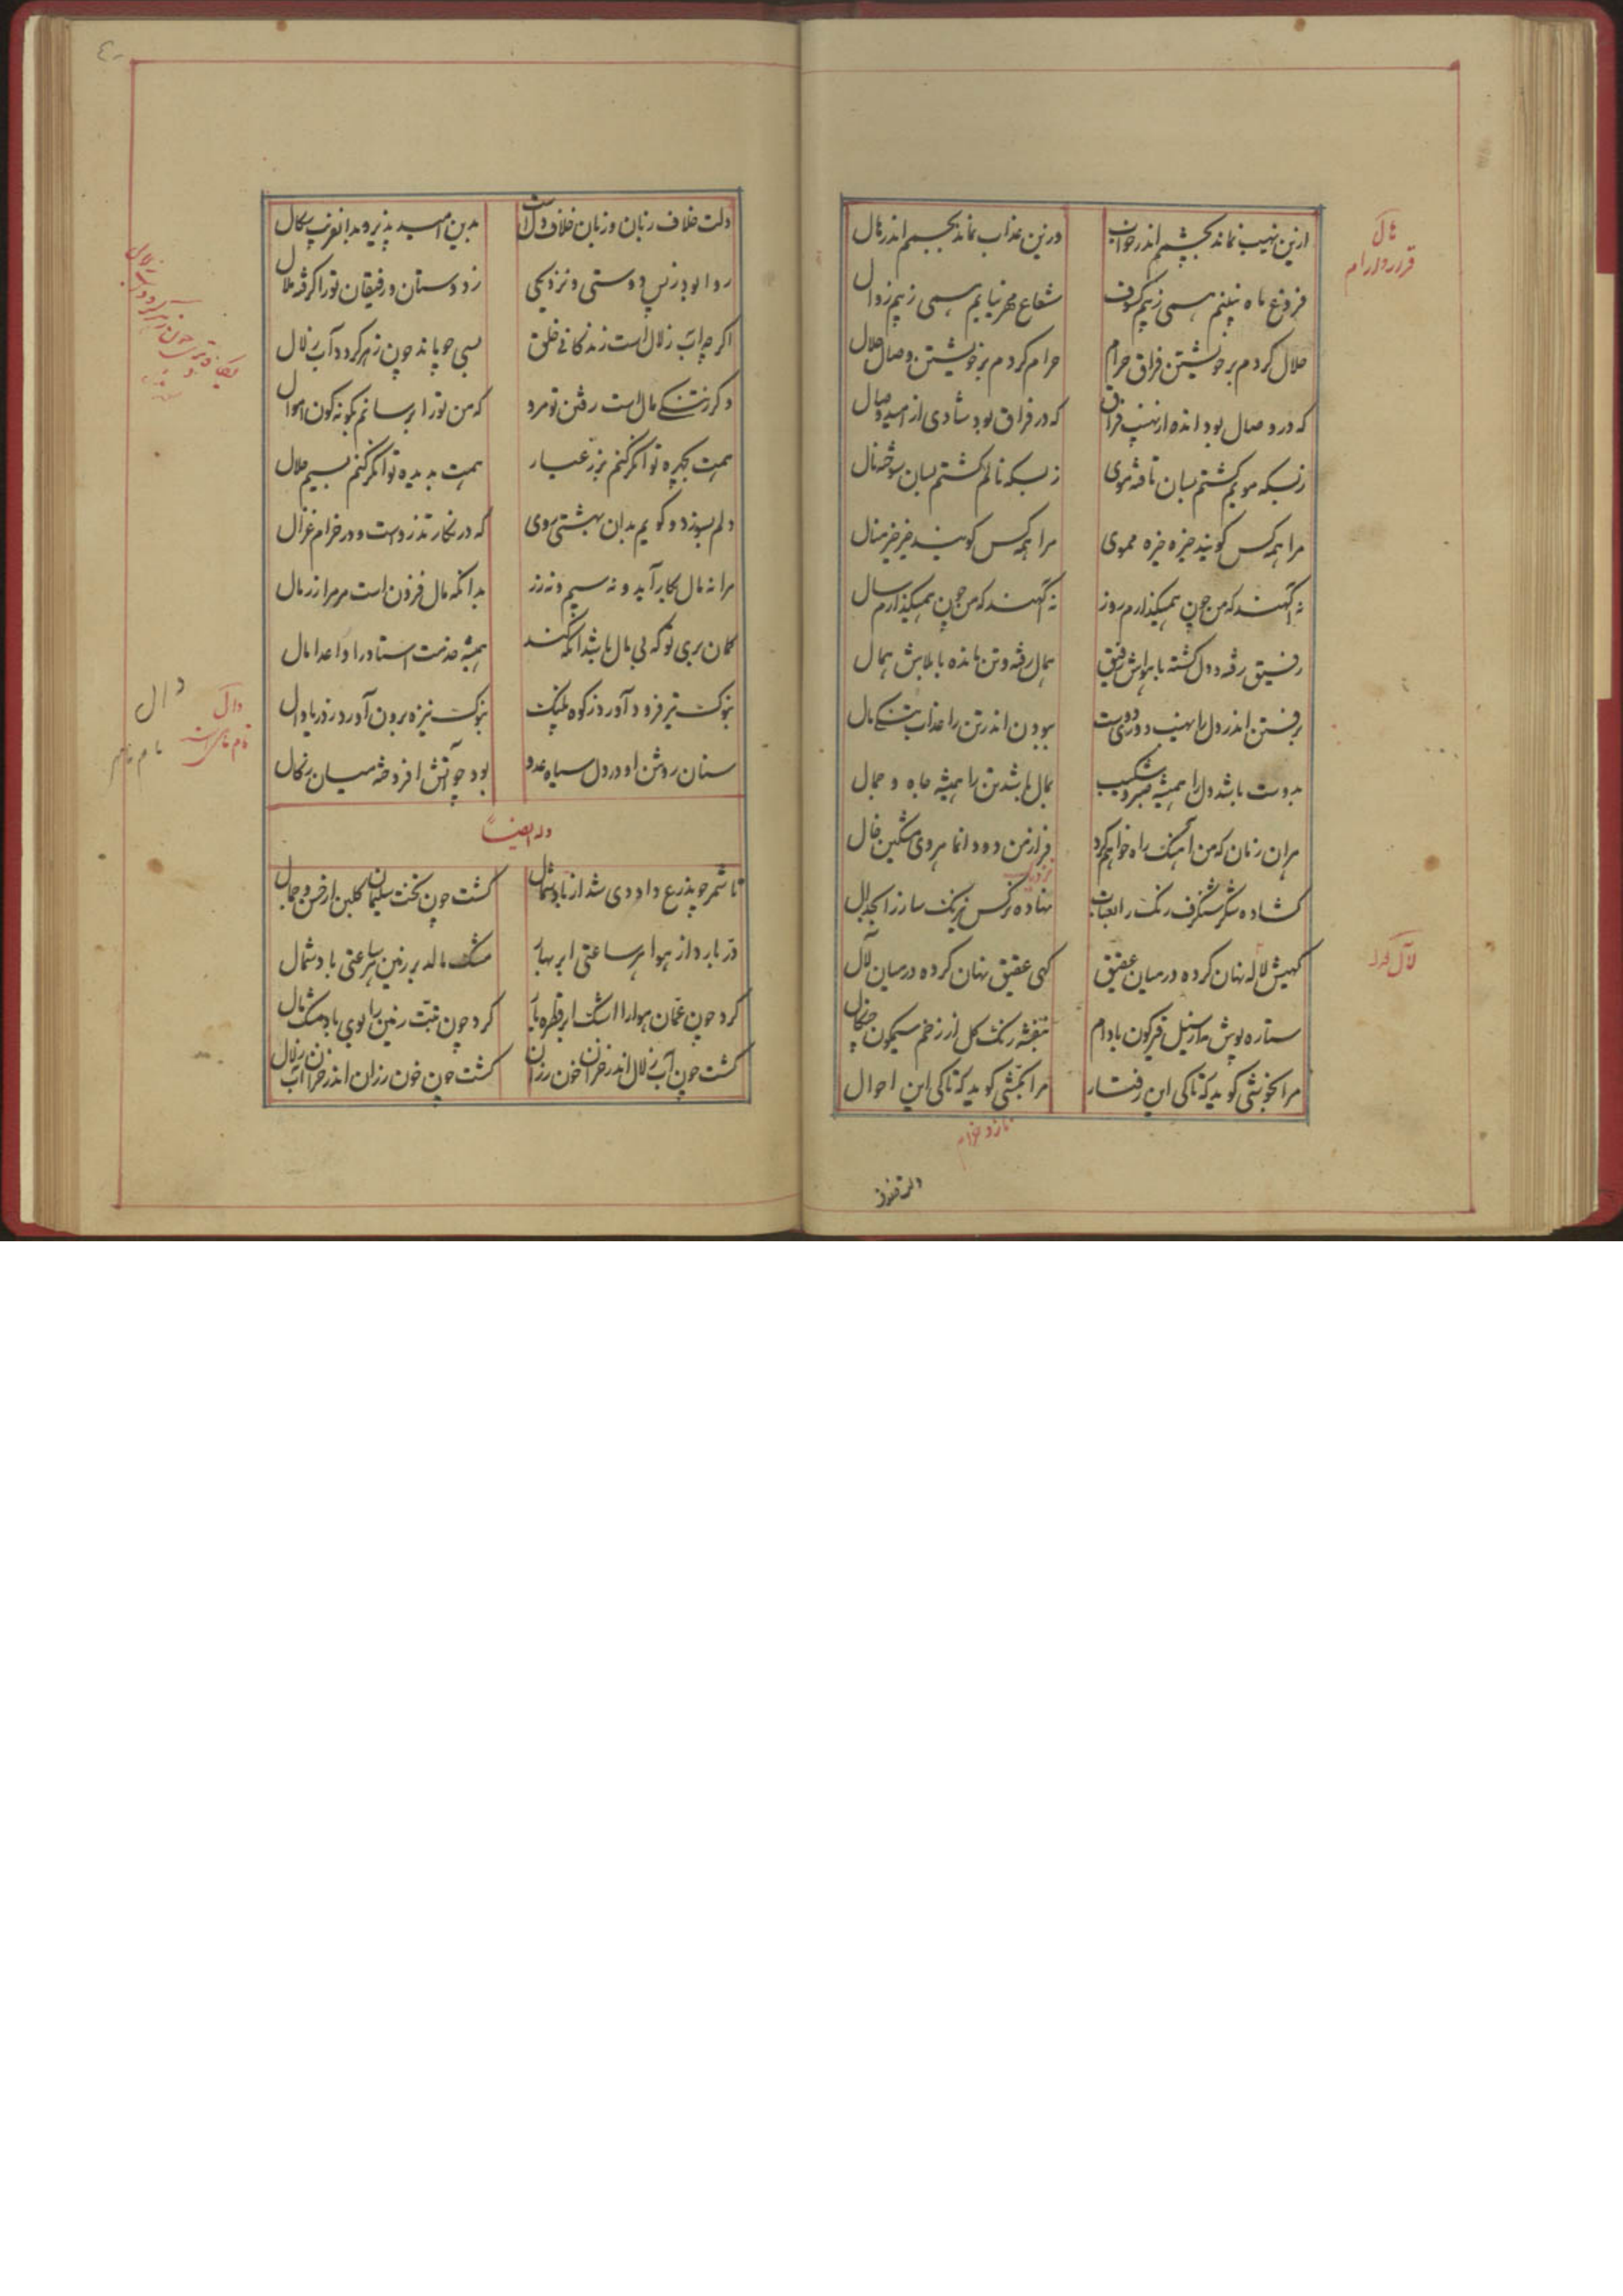 ازین نهیب نماند بچشم اندر خواب
وزین عذاب نماند بجسم اندر هال
فروغ ماه نبینم همی ز بیم کسوف
شعاع مهر نیابم همی ز بیم زوال
حلال کردم بر خویشتن فراق حرام
حرام کردم بر خویشتن وصال حلال
که در وصال بود انده از نهیب فراق
که در فراق بود شادی از امید وصال
زبسکه مویم گشتم بسان تافته موی
زبسکه نالم گشتم بسان سوخته نال
مرا همه کس گویند خیره خیره مموی
مرا همه کس گویند خیر خیر منال
نه آگهند که من چون همیگذارم روز
نه آگهند که من چون همیگذارم سال
رفیق رفته و دل گشته با هواش رفیق
همال رفته و تن مانده با بلاش همال
برفتن اندر دل را نهیب دوری دوست
ببودن اندر تن را عذاب تنگی مال
بدوست باشد دل را همیشه صبر و شکیب
بمال باشد تن را همیشه جاه و جمال
بران زمان که من آهنگ راه خواهم کرد
فراز من دود انماهروی مشکین خال
گشاده شکر شنگرف رنگ را بعتاب
نهاده نرگس نیرنگ ساز را بجدال
گهیش لاله نهان کرده در میان عقیق
گهی عقیق نهان کرده در میان لآل
ستاره پوش بدان نیل قیرگون بادام
بنفشه رنگ گل از زخم سیمگون چنگال
مرا بخوشی گوید که تا کی این رفتار
مرا بکشی گوید که تا کی این احوال
هال
قرار و آرام
لآل
ناز و خرام
دلت خلاف زبان و زبان خلاف دل است
بدین امید پذیرو بدانفریب سکال
روا بود ز پس دوستی و نزدیکی
ز دوستان و رفیقان تو را گرفته ملال
اگر چه آب زلال است زندگانی خلق
بسی چو ماند چون زهر گردد آب زلال
وگر ز تنگی مال است رفتن تو مرو
که من تو را برسانم بگونه گون اموال
همت بچهره توانگر کنم بزر عیار
همت بدیده توانگر کنم بسیم حلال
دلم بسوزد و گویم بدان بهشتی روی
که در نگار تذرو است و در خرام غزال
مرا نه مال بکار آید و نه سیم و نه زر
بدانکه مال فزون است مر مرا ز رمال
گمان بری تو که بی مال باشد آنکه کند
همیشه خدمت استاد راد اعدا مال
بنوک تیر فرود آورد ز کوه پلنگ
بنوک نیزه برون آورد ز دریا دال
سنان روشن او در دل سیاه عدو
بود چو آتش افروخته میان زکال
وله ایضاً
تا شمر چو بذرع داودی شد از باد شمال
گشت چون تخت سلیمان گلبن از حسن و جمال
در بارد از هوا هر ساعتی ابر بهار
مشک مالد بر زمین هر ساعتی باد شمال
کرد چون عمان هوا را اشک ابر قطره بار
کرد چون تبت زمین را بوی باد مشک مال
گشت چون آب زلال اندر خزان خون رزان
گشت چون خون رزان اندر خزان آب زلال
دال
نام
دال